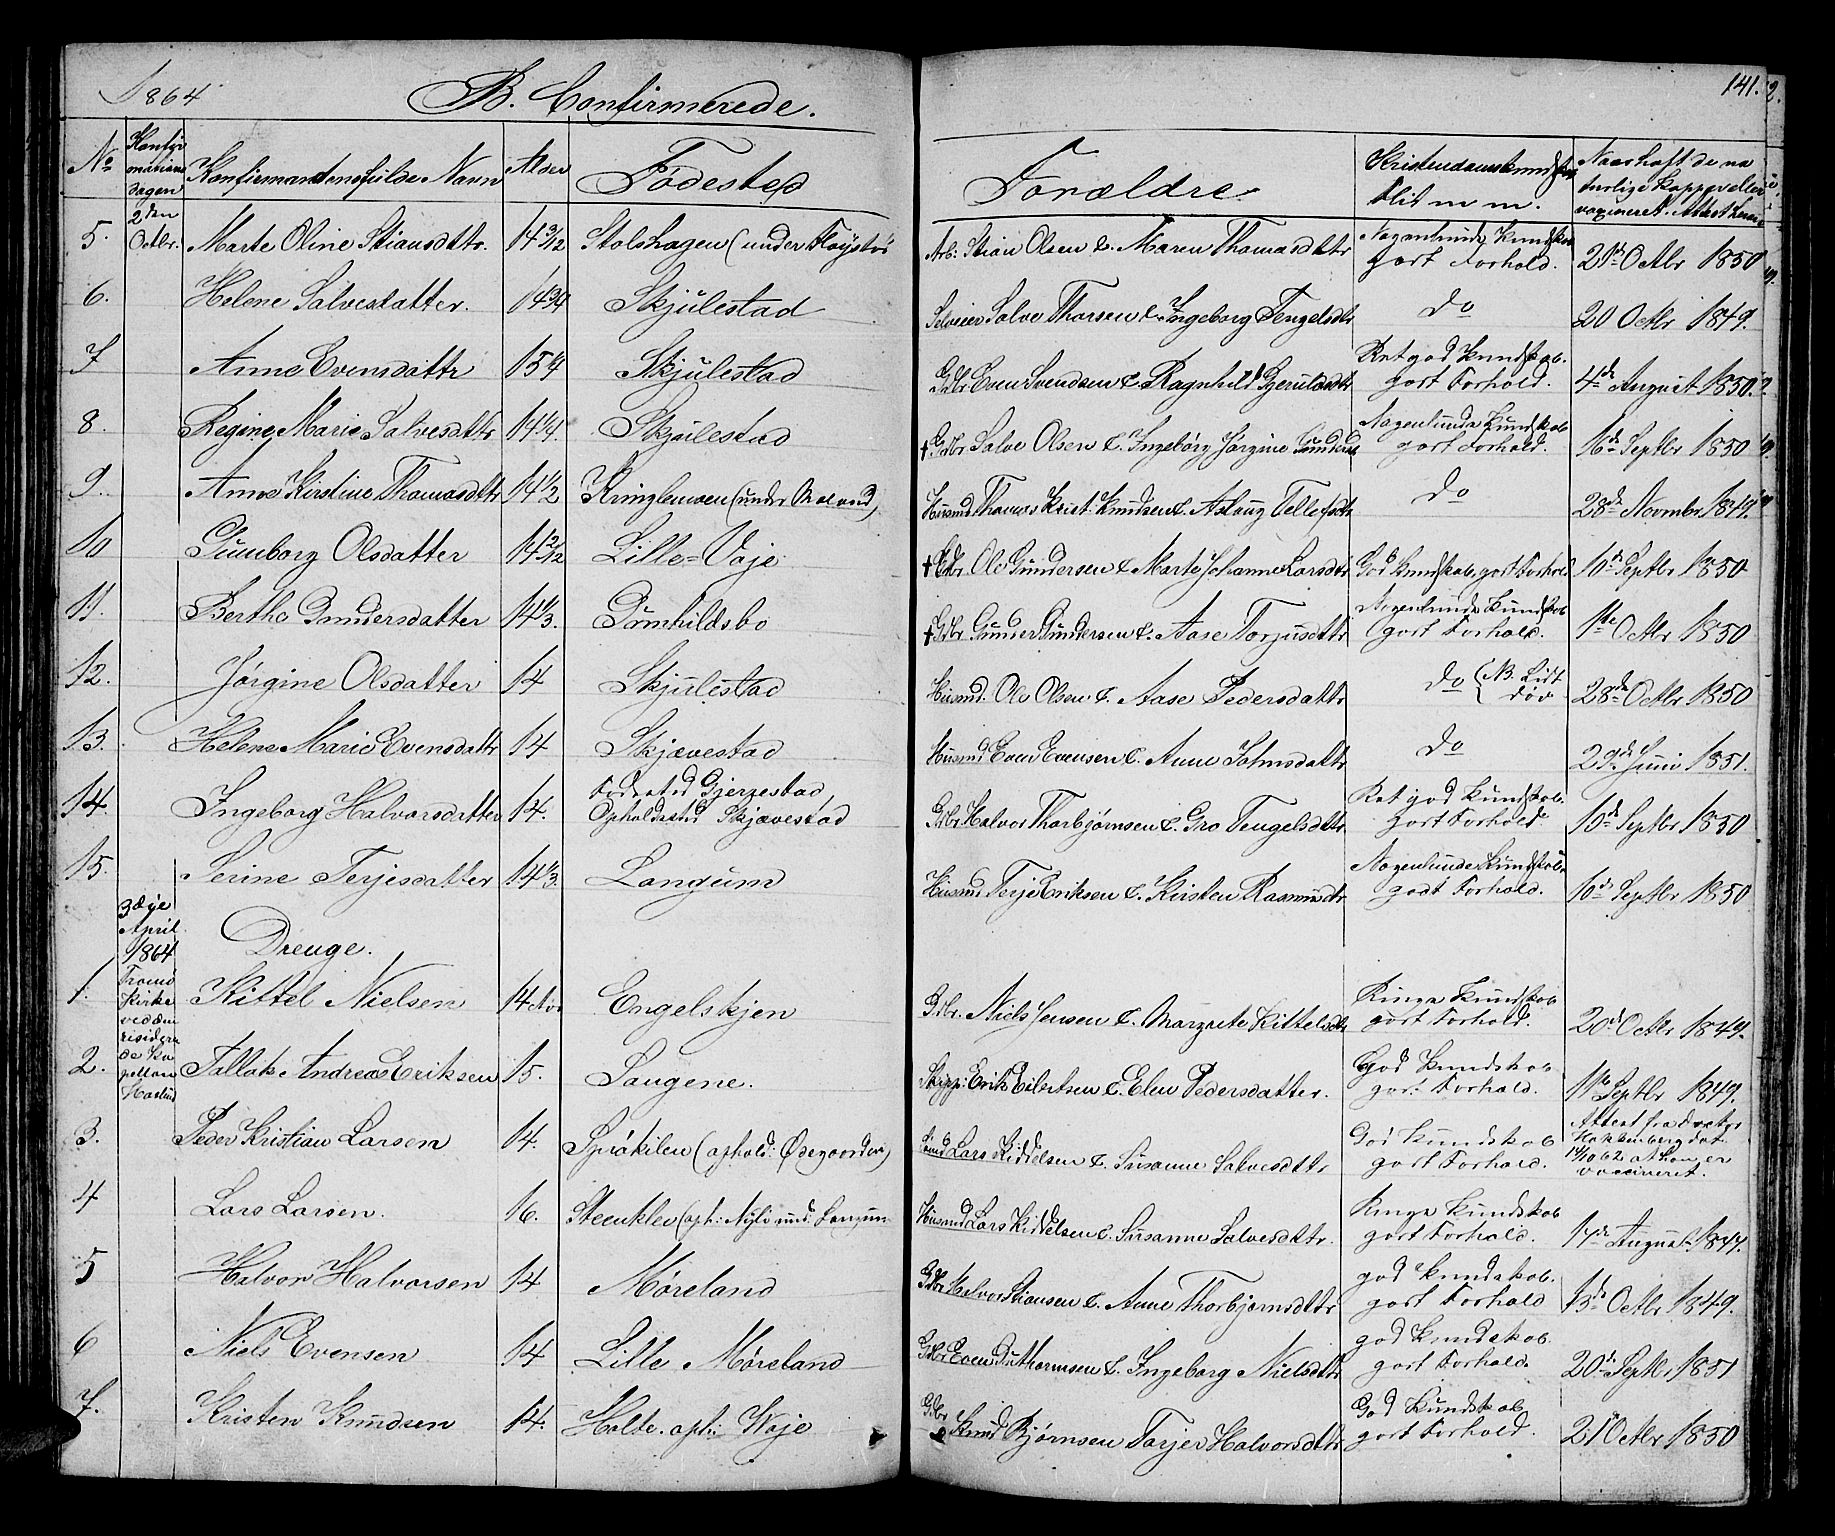 1864 B. Confirmerede. 141.
No Konfirmations dagen Konfirmandens fulde Navn Alder Fødested Forældre Kristendomskundskab Flit m. m. Naar havt de naturlige Kopper eller vaxineret. Attest
5. 2den Octbr. Marte Oline Stiansdttr. 14 3/12 Stolshagen (under Fløystø Arb: Stian Olsen & Maren Thomasdttr Nogenlunde Kundskab godt Forhold. 21de Octbr 1850
6. Helene Salvesdatter. 14 3/4 Skjulestad Selveier Salve Thorsen & Ingeborg Tengelsdtr do 20 Octbr 1849.
7 Anne Evensdattr 15 1/4 Skjulestad Gdbr Even Svendsen & Ragnhild Gjeruldsdtr Ret god Kundskab. godt Forhold. 4de August 1850.
8. Regine Marie Salvesdattr 14 1/4 Skjulestad † Gdbr Salve Olsen & Ingeborg Jørgine Gunders Nogenlunde Kundskab godt Forhold. 16de Septbr 1850
9. Anne Kirstine Thomasdttr 14 1/2 Kringlemoen (under Moland) Husmd Thomas Krist: Knudsen & Aslaug Tellefsdtr do 28de Novmbr 1849.
10 Gunborg Olsdatter 14 2/12 Lille=Voje † Gdbr Ole Gundersen & Marte Johanne Larsdtr God Kundskab, godt Forhold 10de Septbr 1850
11. Berthe Gundersdatter 14 1/3. Gunhildsbo † Gdbr Gunder Gundersen & Aase Torjusdttr Nogenlunde Kundskab godt Forhold. 1ste Octbr 1850
12. Jørgine Olsdatter 14 Skjulestad Husmd. Ole Olsen & Aase Pedersdattr do (NB. Lidt døv 28de Octbr 1850
13. Helene Marie Evensdattr 14 Skjævestad Husmd Even Evensen & Anne Salmsdattr do 29de Juni 1851.
14. Ingeborg Halvorsdatter 14. Fødested Gjerzestad, Opholdssted Skjævestad Gdbr Halvor Thorbjørnsen & Gro Tengelsdttr Ret god Kundskab. godt Forhold 10de Septbr 1850
15. Serine Terjesdatter 14 1/3. Langum Husmd Terje Eriksen & Kirsten Rasmusdtr Nogenlunde Kundskab godt Forhold. 10de Septbr 1850
3dje April 1864 Drenge.
1. Tromø Kirke ved den residerende Kapellan Kittel Nielsen 14 Engelskjen Gdbr. Niels Jensen & Margrete Kittelsdtr Ringe Kundskab godt Forhold. 20de Octbr 1849.
2. Tallak Andreas Eriksen 15. Saugene. Skipp: Erik Eilertsen & Elen Pedersdatter. God Kundskab godt Forhold. 11te Septbr 1849.
3. Peder Kristian Larsen 14. Spirøkilen (ophold: Ødegaarden) Husmd Lars Kiddelsen & Susanne Salvesdttr God Kundskab godt Forhold. Attest fra doctor dat 14/10 62 at han er vaccineret.
4 Lars Larsen. 16. Steenklev (oph: Myli und. Langum Husmd Lars Kiddelsen & Susanne Salvesdttr. Ringe Kundskab godt Forhold. 14de August 1847.
5 Halvor Halvorsen 14 Møreland Gdbr Halvor Stiansen & Anne Thorbjørnsdttr god Kundskab. godt Forhold 13de Octbr 1849.
6 Niels Evensen 14 Lille Møreland Gdbr Even Guthormsen & Ingeborg Nielsdttr god Kundskab. godt Forhold. 20de Septbr 1851
7. Kristen Knudsen 14. Holte. oph: Woje Gdbr Knud Bjørnsen Torjer Halvorsdttr God Kundskab godt Forhold. 21de Octbr 1850